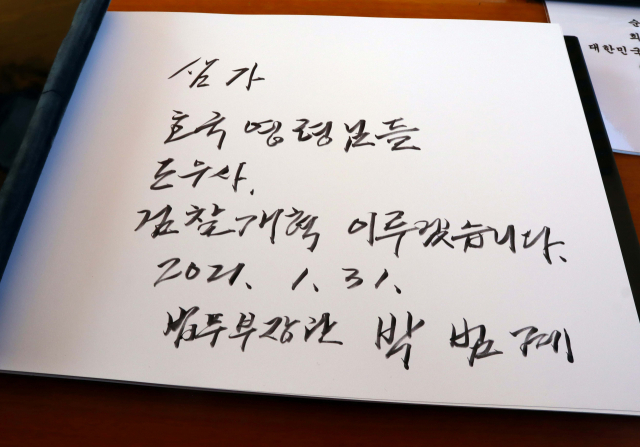 삼가
호국영령님들
도우사.
검찰개혁 이루겠습니다.
2021. 1. 31.
법무부장관 박범계
순
희
대한민국